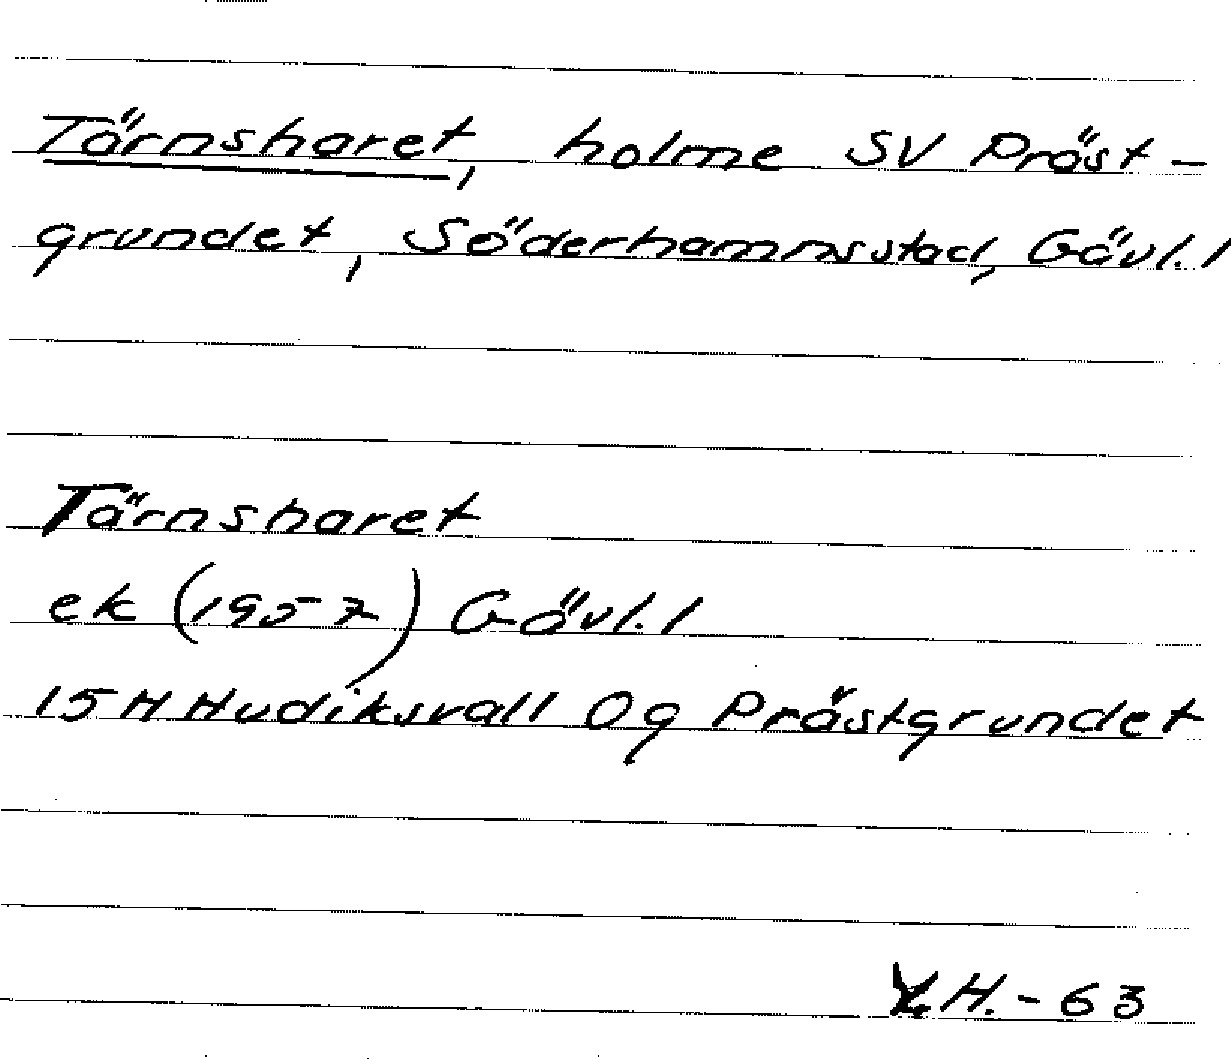 Tärnsharet, holme SV Präst-
grundet, Söderhamnsstad, Gävl. l
Tärnsharet
ek (1957) Gävl. l
15H Hudiksvall 0g Prästgrundet
H. - 63